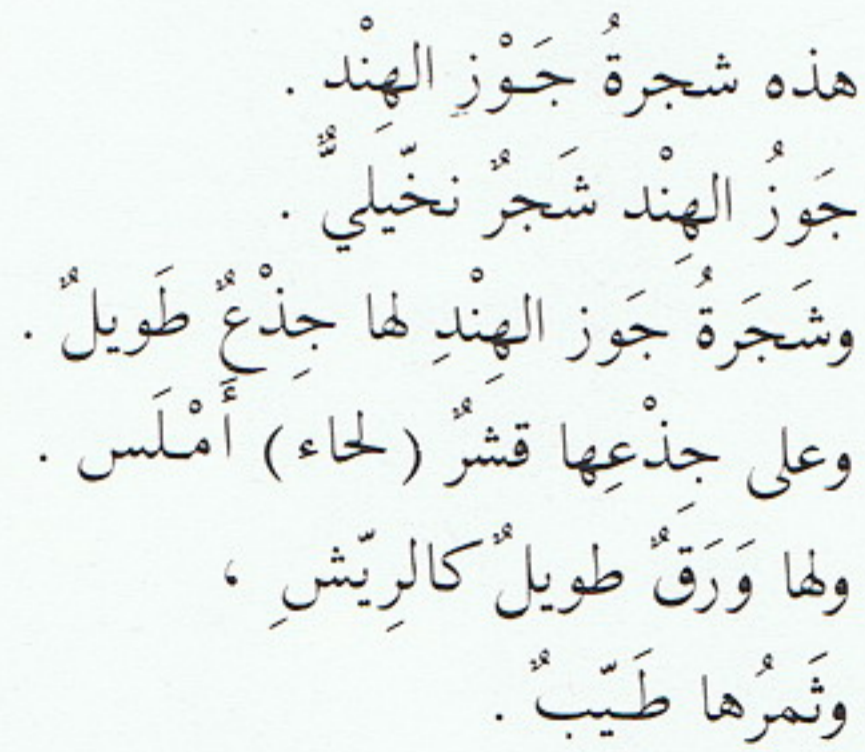 هذه شجرةُ جَـوْزِ الهِنْد .
جَوزُ الهِنْد شَجرٌ نخّيليٌّ .
وشَجَرةُ جَوز الهِنْدِ لها جِذْعٌ طَويلٌ .
وعلى جِذْعِها قشرٌ (لحاء) أَمْـلَس .
ولها وَرَقٌ طويلٌ كالرِيّشِ ،
وثَمرُها طَـيّبٌ .